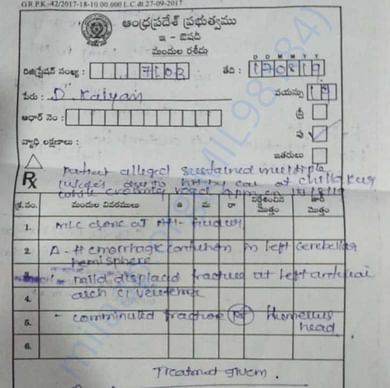 G.R.P.K.-42/2017-18-10,00,000 L.C.dt.27-09-2017
ఆంధ్రప్రదేశ్ ప్రభుత్వము
ఇ - ఔషధి
మందుల రశీదు
రిజిస్ట్రేషన్ సంఖ్య : 7102 తేది : D D M M Y Y
పేరు : D. Kalyan వయస్సు
ఆధార్ నెం : స్త్రీ
పు ✓
వ్యాధి లక్షణాలు : ఇతరులు
Rx patient alleged sustained multiple
injuries due to hit by car at chillakur
while crossing road
క్ర.సం. మందుల వివరములు ఉ మ రా నిర్దేశించిన మొత్తం జారీ మొత్తం
1. MLC done at AH-Gudur
2. Δ - Hemorrhagic contusion in left cerebellar
hemisphere
3. - mild displaced fracture at left
4. arch C1 vertebra
5. - comminuted fracture (R) Humerus
head
6.
Treatment given.